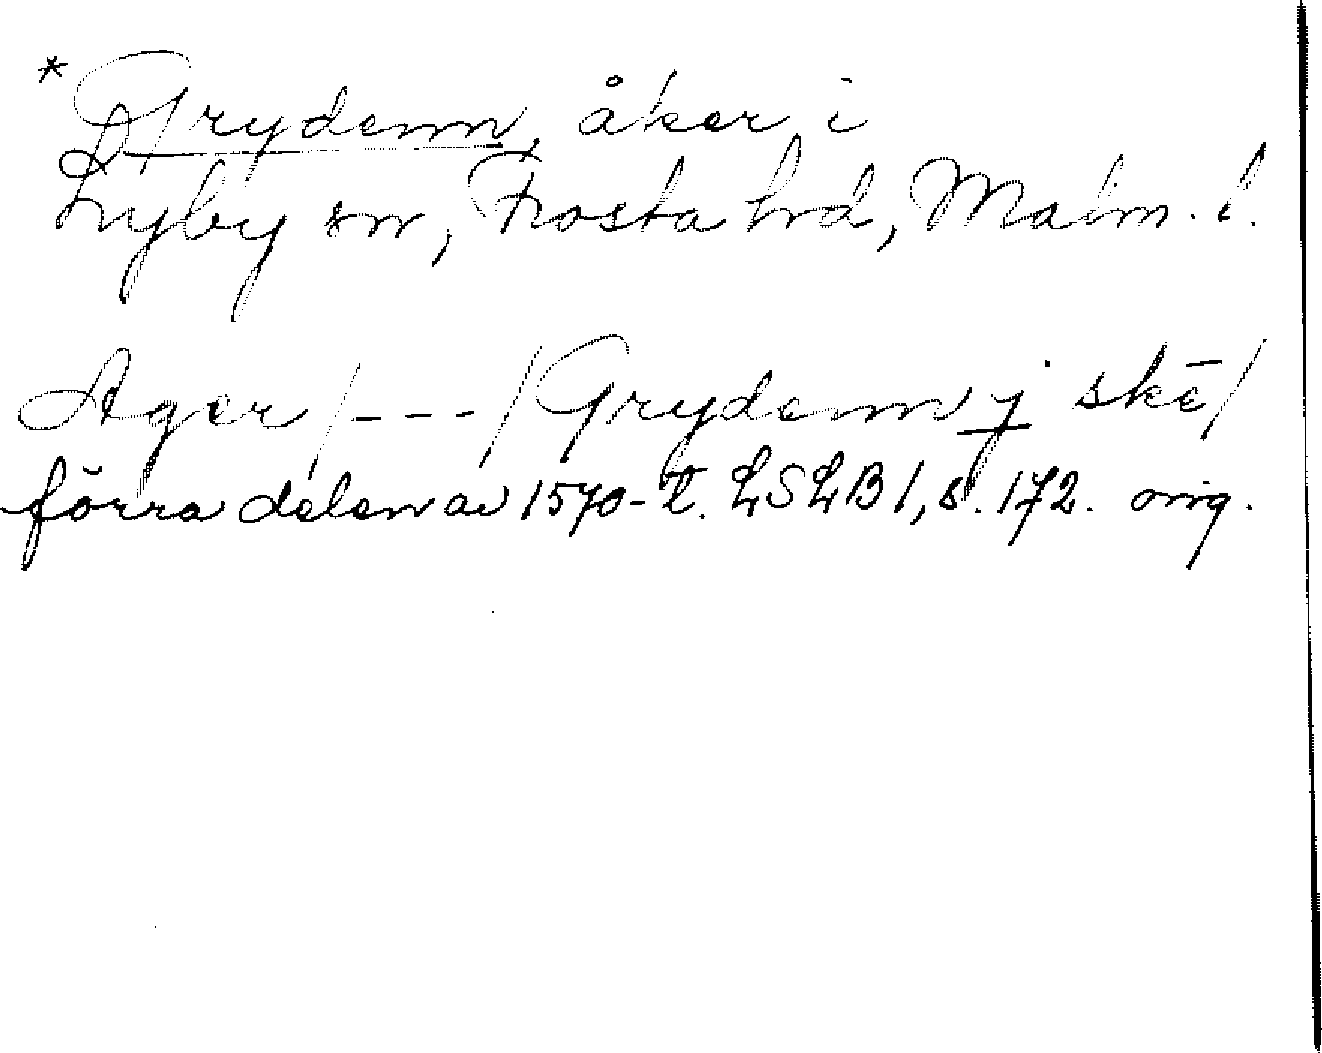 * Grydenn, åker i
Lyby sn, Frosta hd, Malm. l.
Ager /---/ Grydenn j skē/
förra delen av 1570-t. LSLB 1, s. 172. orig.